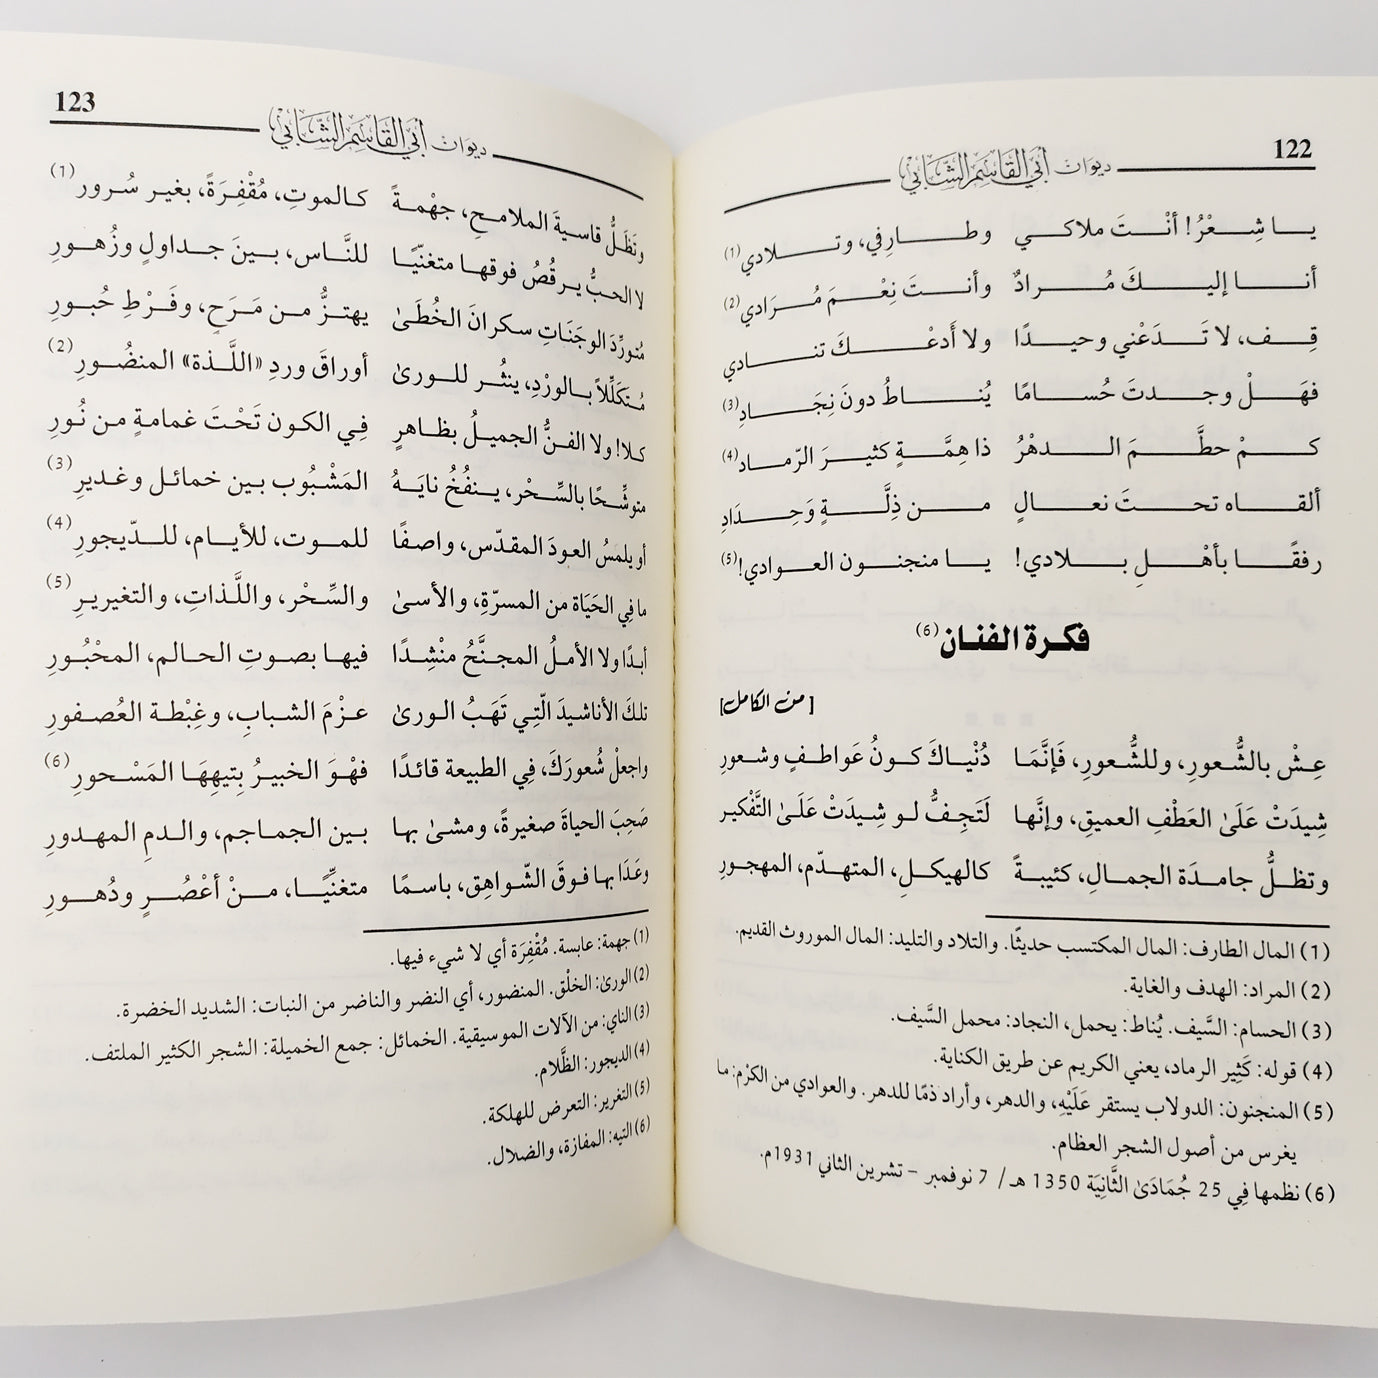 122
ديوان أبي القاسم الشابي
يا شِعْرُ! أنْتَ ملاكي وطارِفي، وتلادي(1)
أنا إليكَ مُرادٌ وأنتَ نِعْمَ مُرَادي(2)
قِف، لا تَدَعْني وحيدًا ولا أَدعْكَ تنادي
فهَلْ وجدتَ حُسامًا يُناطُ دونَ نِجَادِ(3)
كمْ حطَّمَ الدهْرُ ذا هِمَّةٍ كثيرَ الرّماد(4)
ألقاه تحتَ نعالٍ من ذِلَّةٍ وَحِدَادِ
رفقًا بأهْلِ بلادي! يا منجنون العوادي!(5)
فكرة الفنان(6)
[من الكامل]
عِشْ بالشُّعورِ، وللشُّعورِ، فَإنَّمَا دُنْياكَ كونُ عَواطفٍ وشعورِ
شِيدَتْ عَلَىٰ العَطْفِ العميقِ، وإنَّها لَتَجِفُّ لو شِيدَتْ عَلَىٰ التَّفْكير
وتظلُّ جامدَة الجمالِ، كئيبةً كالهيكلِ، المتهدّم، المهجورِ
(1) المال الطارف: المال المكتسب حديثًا. والتلاد والتليد: المال الموروث القديم.
(2) المراد: الهدف والغاية.
(3) الحسام: السَّيف. يُناط: يحمل، النجاد: محمل السَّيف.
(4) قوله: كَثِير الرماد، يعني الكريم عن طريق الكناية.
(5) المنجنون: الدولاب يستقر عَلَيْهِ، والدهر، وأراد ذمًا للدهر. والعوادي من الكرْم: ما
يغرس من أصول الشجر العظام.
(6) نظمها فِي 25 جُمَادَىٰ الثَّانِيَة 1350 هـ/ 7 نوفمبر – تشرين الثاني 1931م.
123
ديوان أبي القاسم الشابي
وتَظَلُّ قاسيةَ الملامحِ، جهْمةً كالموتِ، مُقْفِرَةً، بغير سُرور(1)
لا الحبُّ يرقُصُ فوقها متغنّيًا للنَّاس، بينَ جداولٍ وزُهورِ
مُتورِّدَ الوجَنَاتِ سكرانَ الخُطَىٰ يهتزُّ من مَرَحٍ، وفَرْطِ حُبورِ
مُتكَلِّلاً بالورْدِ، ينثُر للورىٰ أوراقَ وردِ «اللَّذة» المنضُورِ(2)
كلا! ولا الفنُّ الجميلُ بظاهرٍ فِي الكون تَحْتَ غمامةٍ من نُورِ
متوشِّحًا بالسِّحْر، ينفُخُ نايَهُ المَشْبُوب بين خمائل وغديرِ(3)
أو يلمسُ العودَ المقدّس، واصفًا للموت، للأيام، للدّيجورِ(4)
ما فِي الحَيَاة من المسرّةِ، والأسىٰ والسِّحْر، واللَّذاتِ، والتغريرِ(5)
أبدًا ولا الأملُ المجنَّحُ منْشِدًا فيها بصوتِ الحالم، المحْبُورِ
تلكَ الأناشيدَ الّتِي تَهَبُ الورىٰ عزْمَ الشبابِ، وغِبْطة العُصفورِ
واجعلْ شُعورَكَ، فِي الطبيعة قائدًا فهْوَ الخبيرُ بِتيهِهَا المَسْحورِ(6)
صَحِبَ الحياةَ صغيرةً، ومشىٰ بها بين الجماجم، والدمِ المهدورِ
وعَدَا بها فوقَ الشّواهِق، باسمًا متغنِّيًا، منْ أعْصُرٍ ودُهورِ
(1) جهمة: عابسة. مُقْفِرَة أي لا شيء فيها.
(2) الورىٰ: الخلْق. المنضور، أي النضر والناضر من النبات: الشديد الخضرة.
(3) الناي: من الآلات الموسيقية. الخمائل: جمع الخميلة: الشجر الكثير الملتف.
(4) الديجور: الظَّلام.
(5) التغرير: التعرض للهلكة.
(6) التيه: المفازة، والضلال.